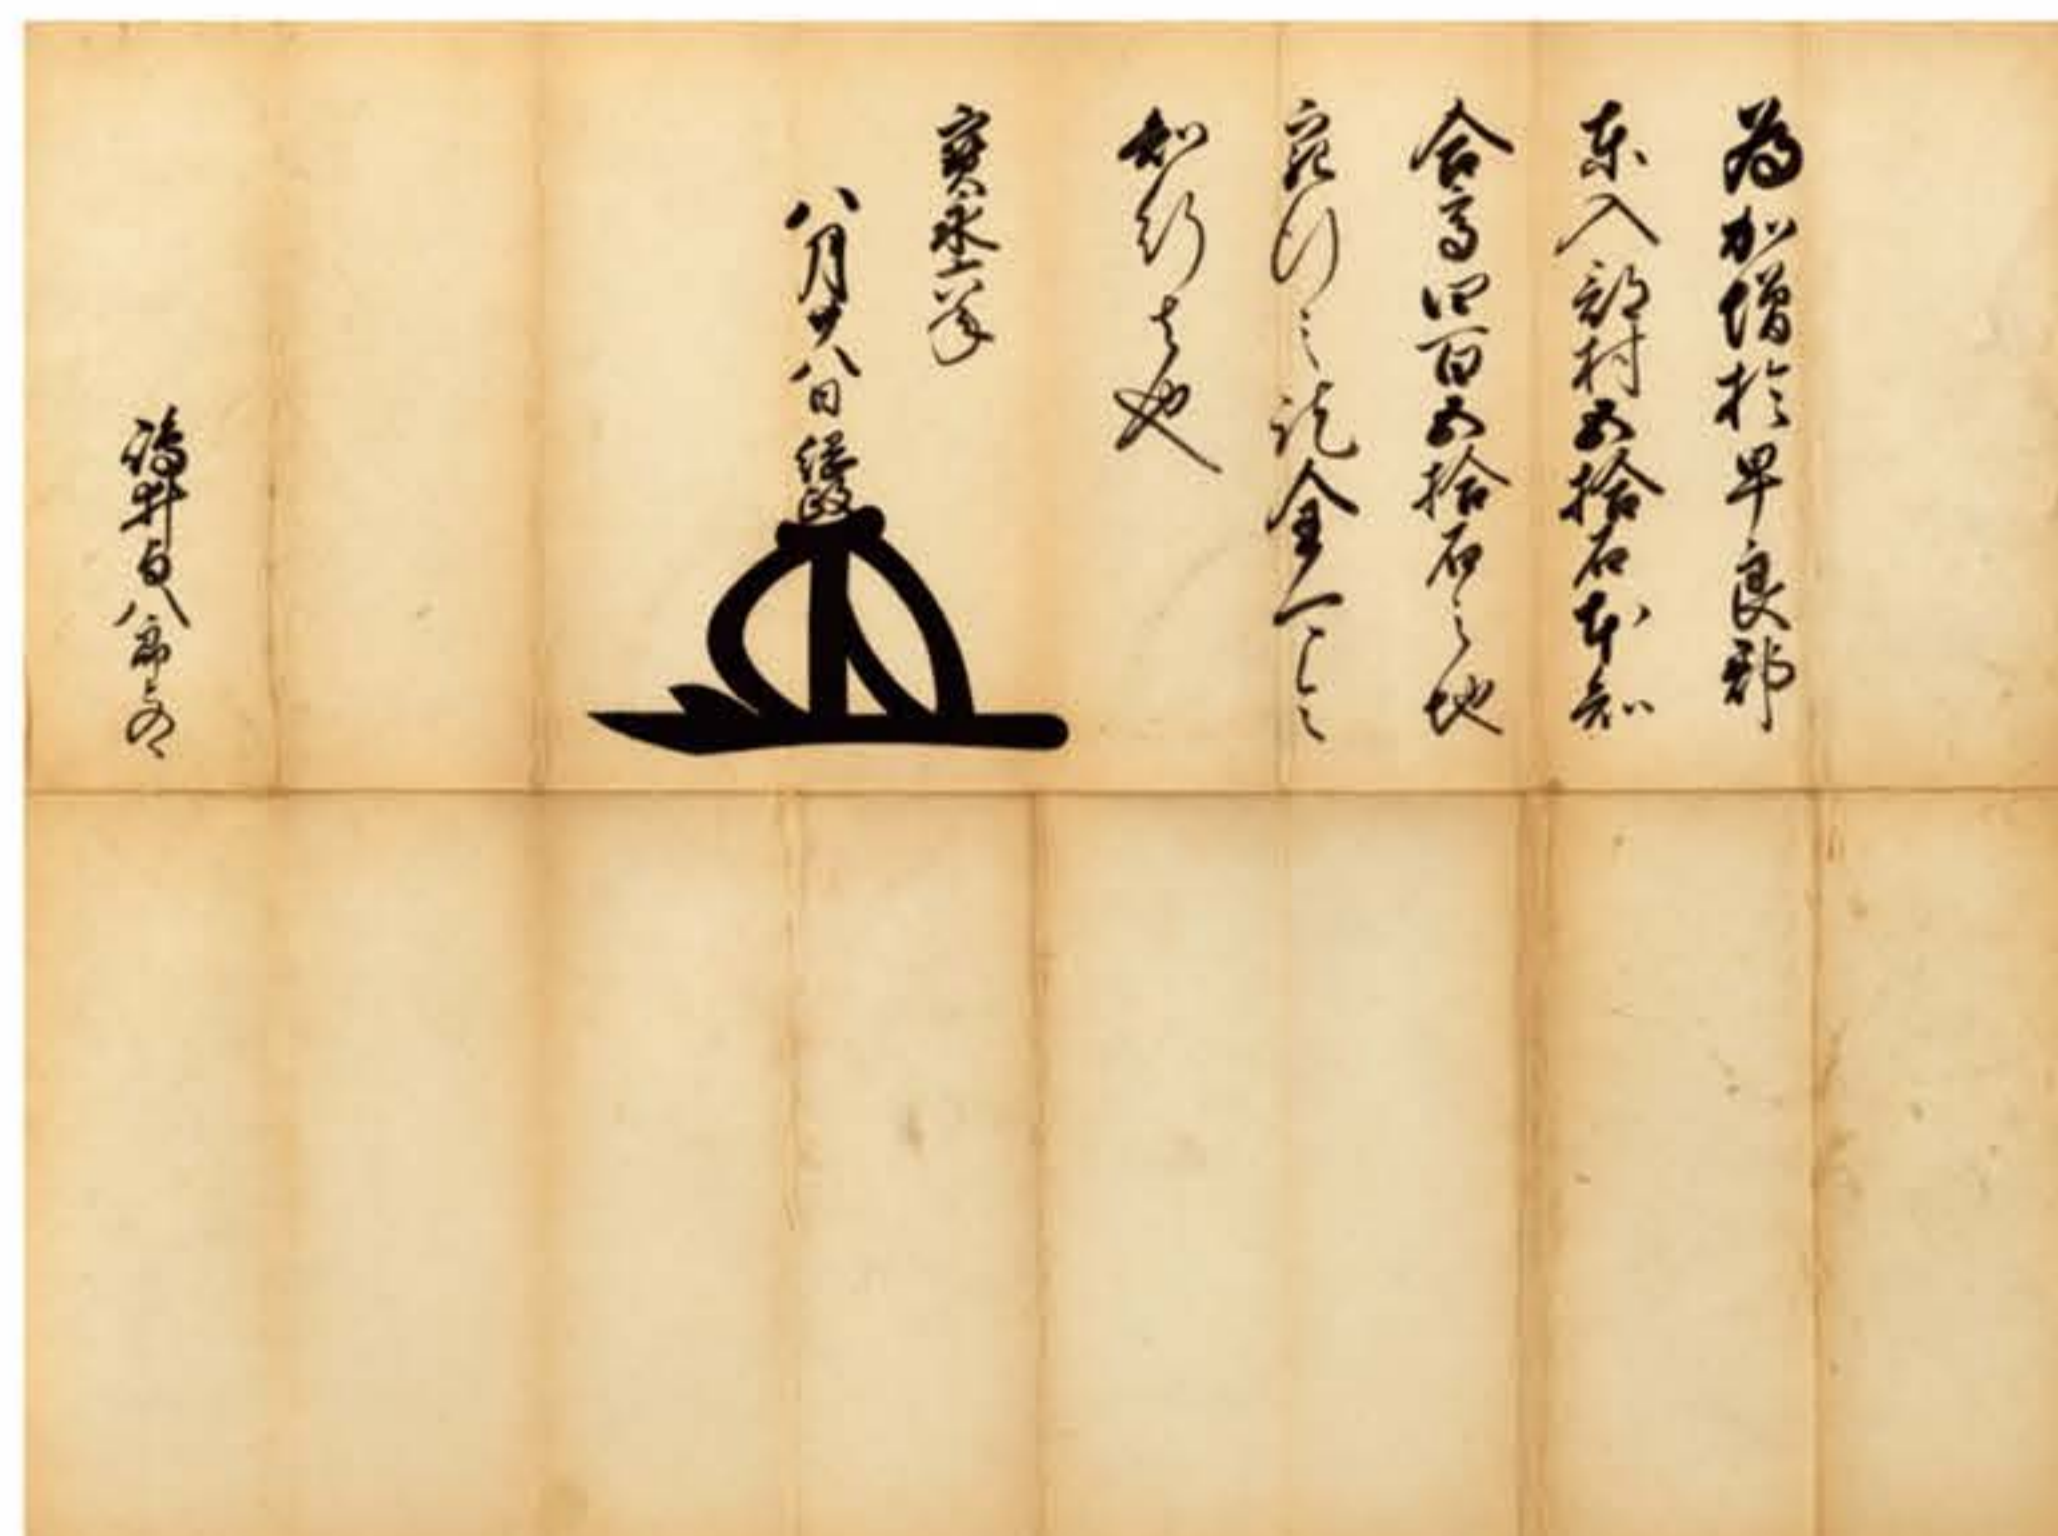 為加増於早良郡
東入部村五拾石本知
合高四百五拾石之地
宛行之訖全可令
知行者也
寶永六年
八月廿八日 綱政
嶋井与八郎とのへ